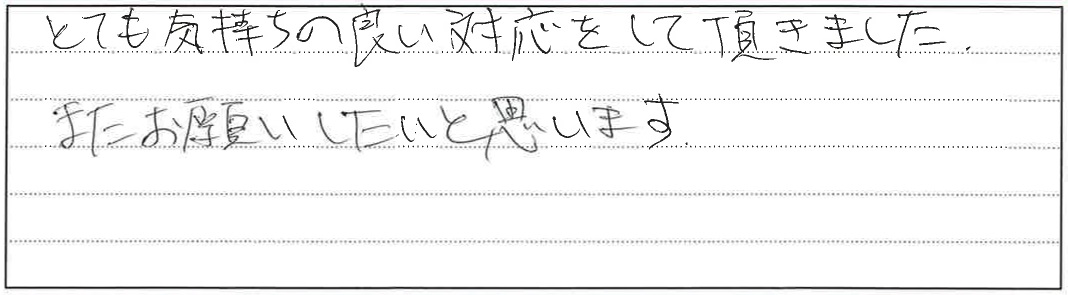 とても気持ちの良い対応をして頂きました.
またお願いしたいと思います.